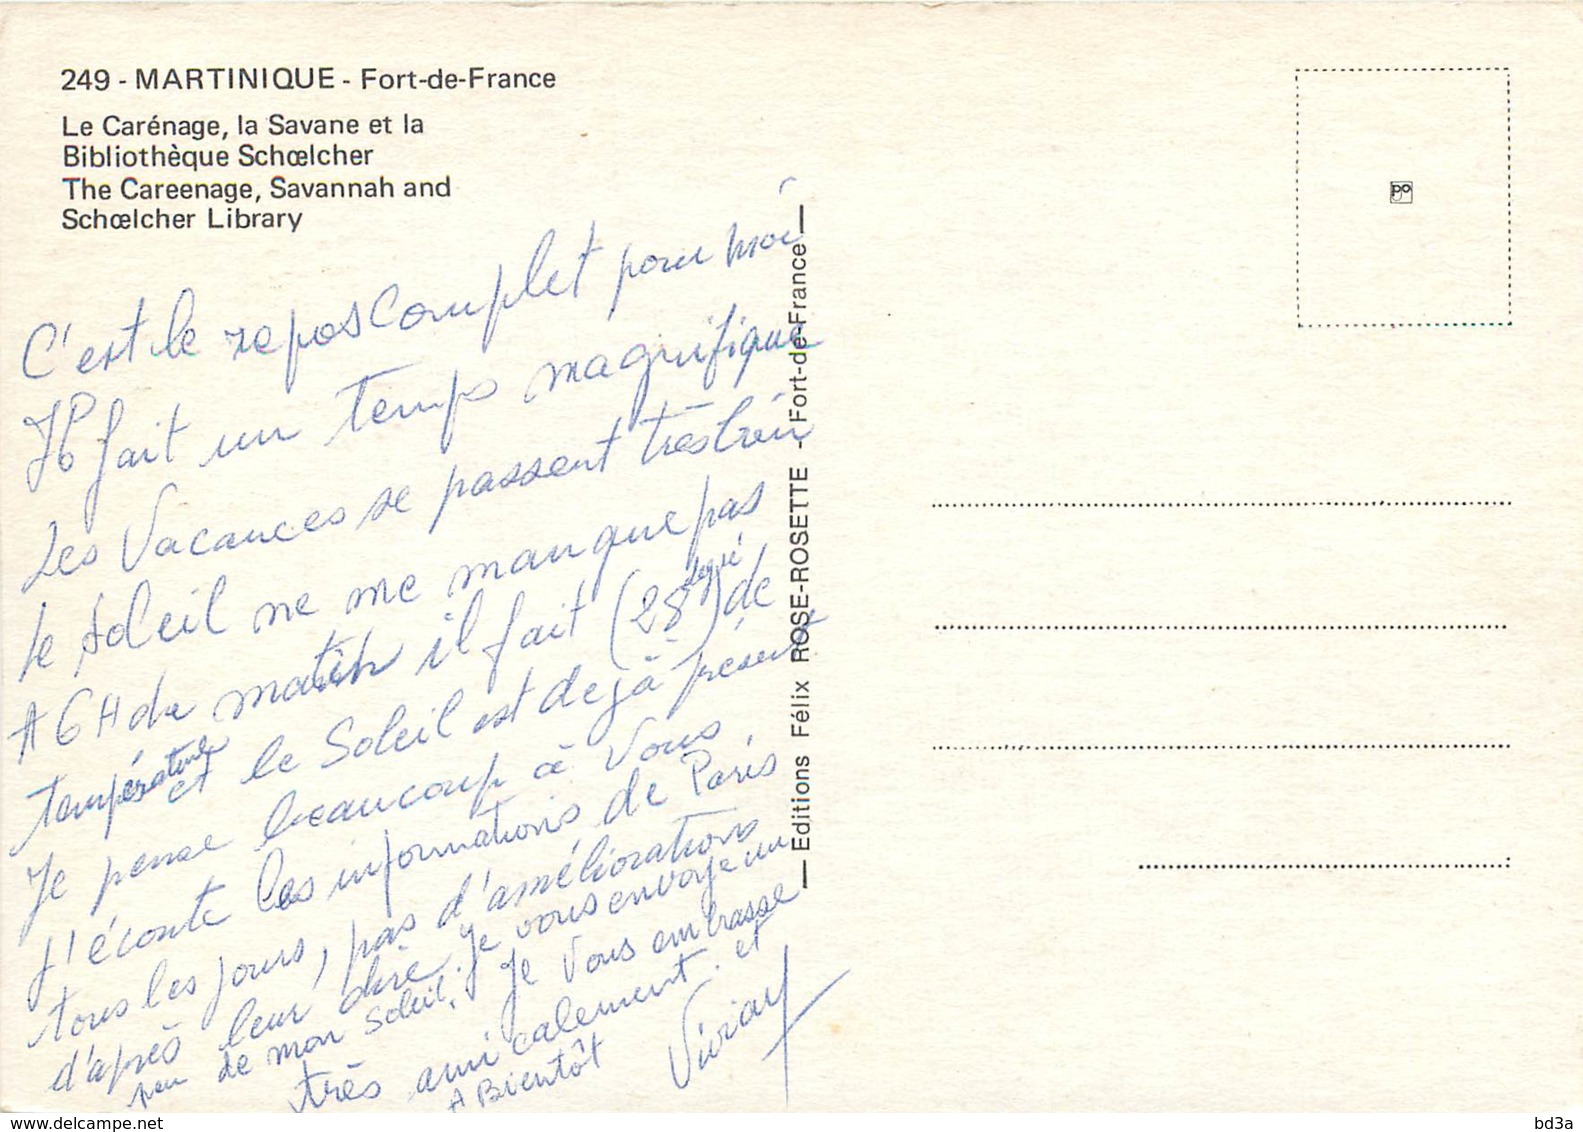 249 - MARTINIQUE - Fort-de-France
Le Carénage, la Savane et la
Bibliothèque Schœlcher
The Careenage, Savannah and
Schœlcher Library
C'est le repos complet pour moi
Il fait un temps magnifique
Les Vacances se passent très bien
le soleil ne me manque pas
A 6H du matin il fait (28 degré) de
température et le Soleil est dejà présent
Je pense beaucoup à Vous
J'écoute les informations de Paris
tous les jours, pas d'améliorations
d'après leur dire, Je vous envoye un
peu de mon soleil. Je Vous embrasse
très amicalement. et
A Bientôt
Vivian
Editions Félix ROSE-ROSETTE - Fort-de-France
po
delcampe.net
bd3a